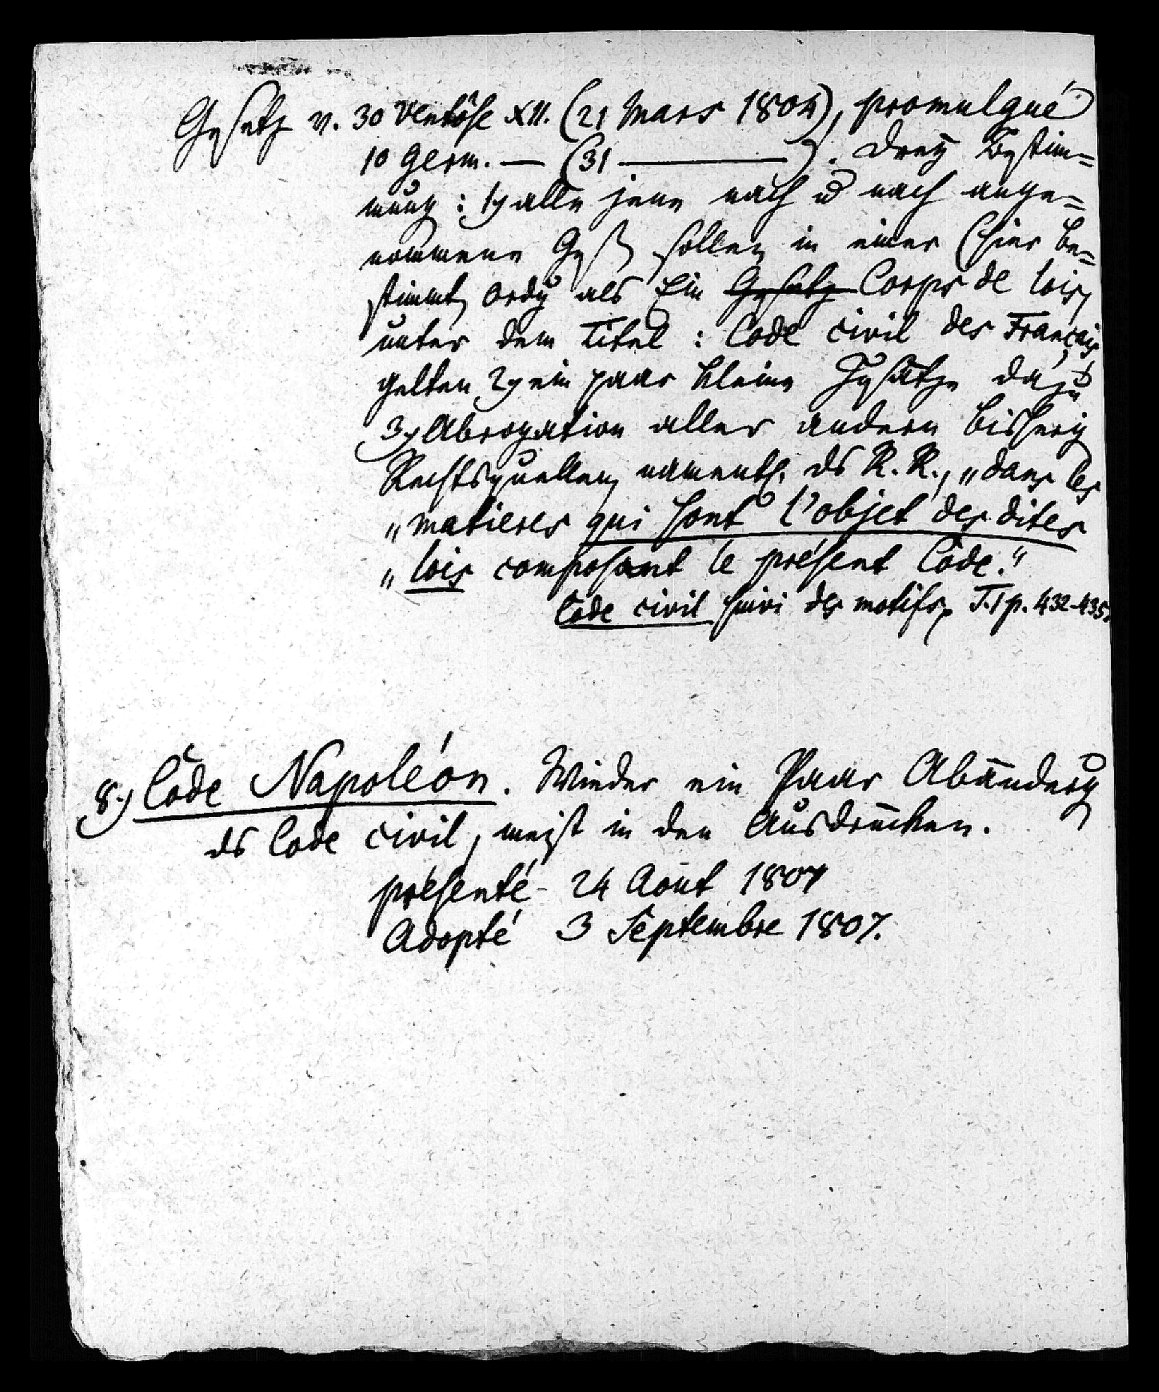 Gesetz v. 30 Ventôse XII. (21 Mars 1804), promulgué
10 Germ. — (31 ———). Drey Bestim=
mung: 1) alle jene nach u nach ange=
nommene Ges. sollen in einer (hier be=
stimmt Ordg als Ein Gesetz Corps de lois,
unter dem Titel: Code civil des Français
gelten 2) ein paar kleine Zusätze dazu
3) Abrogation aller andern bisherig
Rechtsquellen, namentl. ds R. R., „dans les
„matieres qui sont l'objet des dites
„lois composant le présent Côde."
Côde civil suivi des motifs, T. I p. 432-435.
8.) Côde Napoléon. Wieder ein Paar Abänderg
ds Code civil, meist in den Ausdrücken.
présenté - 24 Aout 1807
Adopté 3 Septembre 1807.